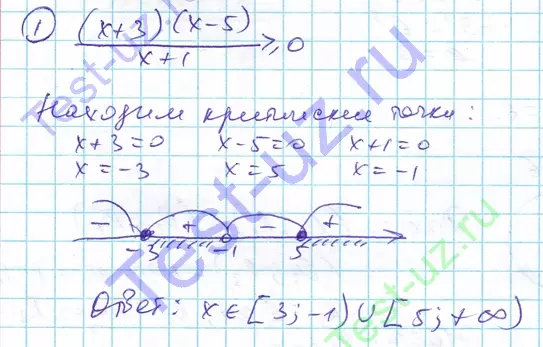 ① (x+3)(x-5) / x+1 ≥ 0
Находим критические точки:
x+3=0 x-5=0 x+1=0
x=-3 x=5 x=-1
- + - +
-3 -1 5
Ответ: x∈[3;-1)∪[5;+∞)
Test-uz.ru
Test-uz.ru
Test-uz.ru